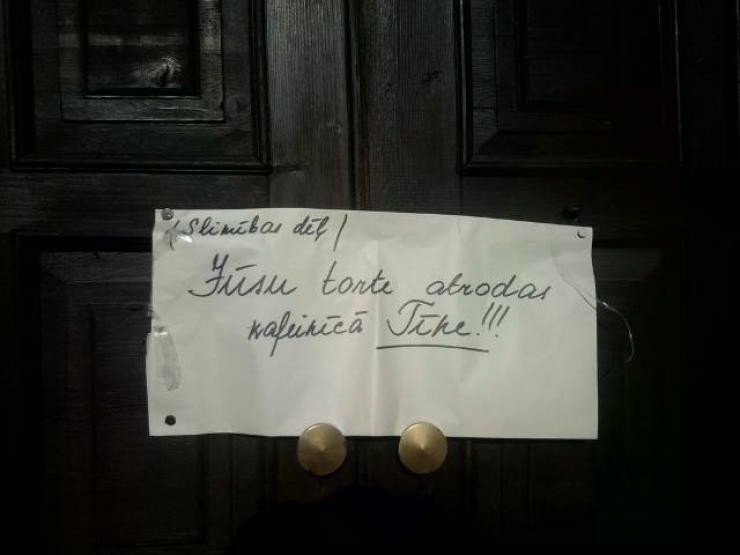 (Slimības dēļ)
Jūsu torte atrodas
kafeinīcā Tīne!!!